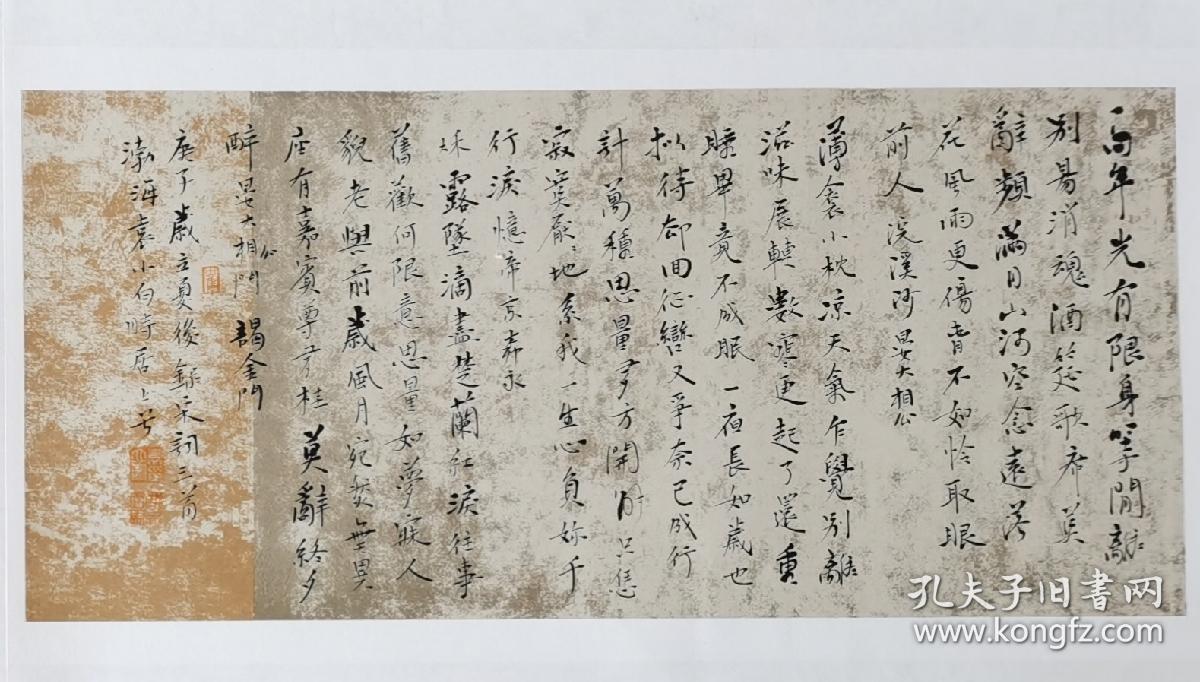 一向年光有限身等閒離
別易消魂酒筵歌席莫
辭頻滿目山河空念遠落
花風雨更傷春不如怜取眼
前人 浣溪沙 晏大相公
薄衾小枕凉天氣乍覺別離
滋味展轉數寒更起了還重
睡畢竟不成眠一夜長如歲也
擬待却回征轡又爭奈已成行
計萬種思量多方開解只恁
寂寞厭厭地系我一生心負妳千
行淚憶帝京 壽永
妹露墜滴盡楚蘭紅淚往事
舊歡何限意思量如夢寐人
貌老與前歲風月宛然無異
座有嘉賓尊有桂莫辭終夕
醉 晏大相公門 謁金門
庚子歲立夏後錄宋詞三首
渤海袁小白時居上
孔夫子旧书网
www.kongfz.com